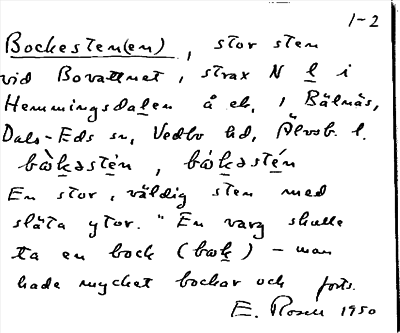 1-2
Bockesten(en), stor sten
vid Bovattnet, strax N l i
Hemmingsdalen å ek. 1 Bälnäs,
Dals-Eds sn, Vedbo hd, Älvsb. l.
En stor, väldig sten med
släta ytor. "En varg skulle
ta en bock (bɷk) – man
hade mycket bockar och forts.
E. Rosell 1950